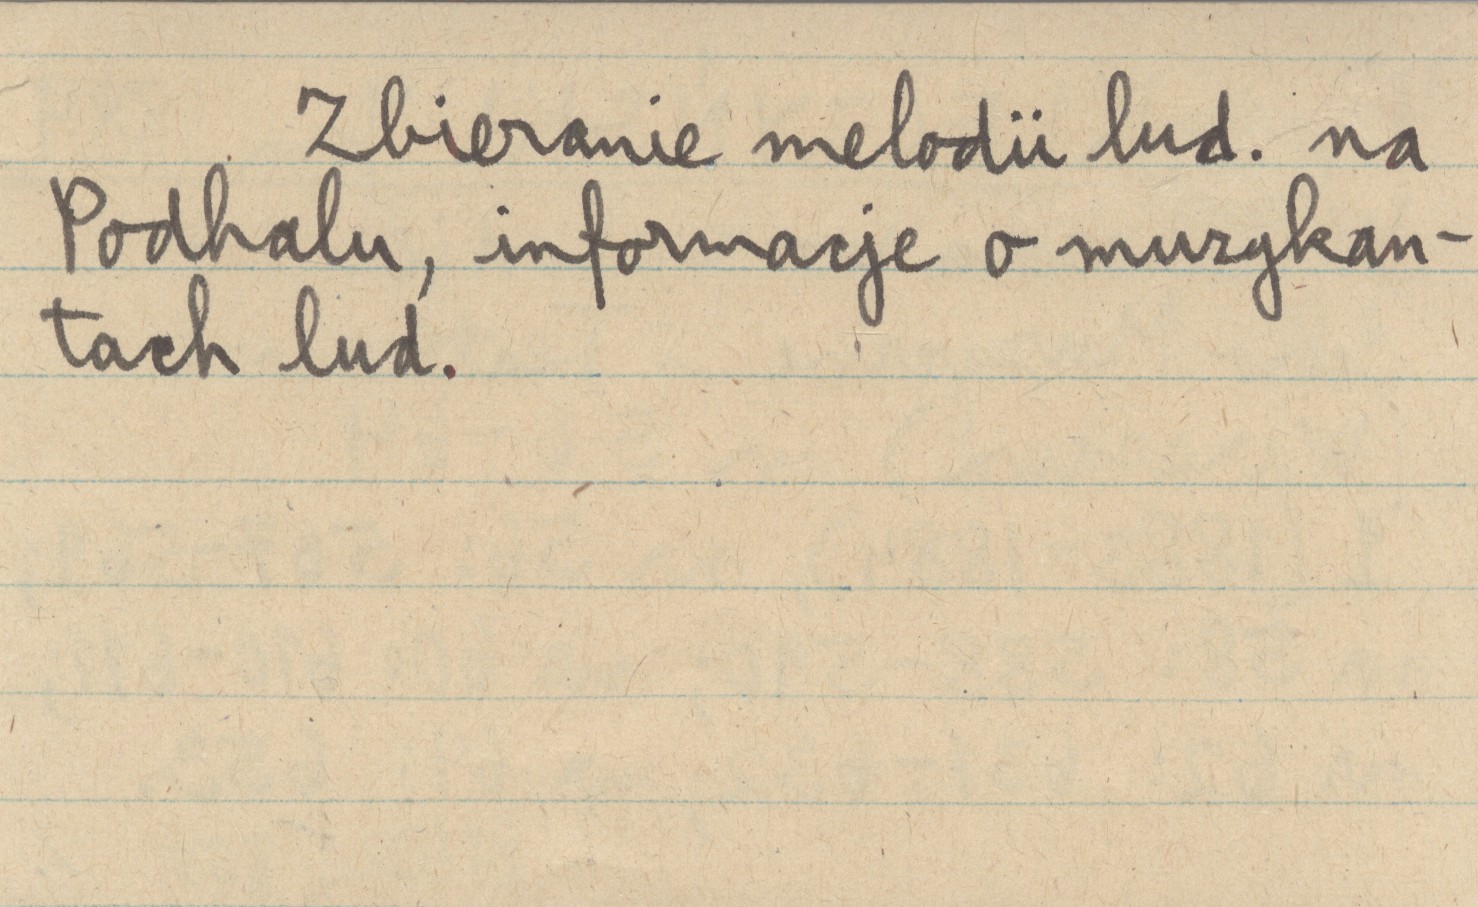 Zbieranie melodii lud. na
Podhalu, informacje o muzykan-
tach lud.